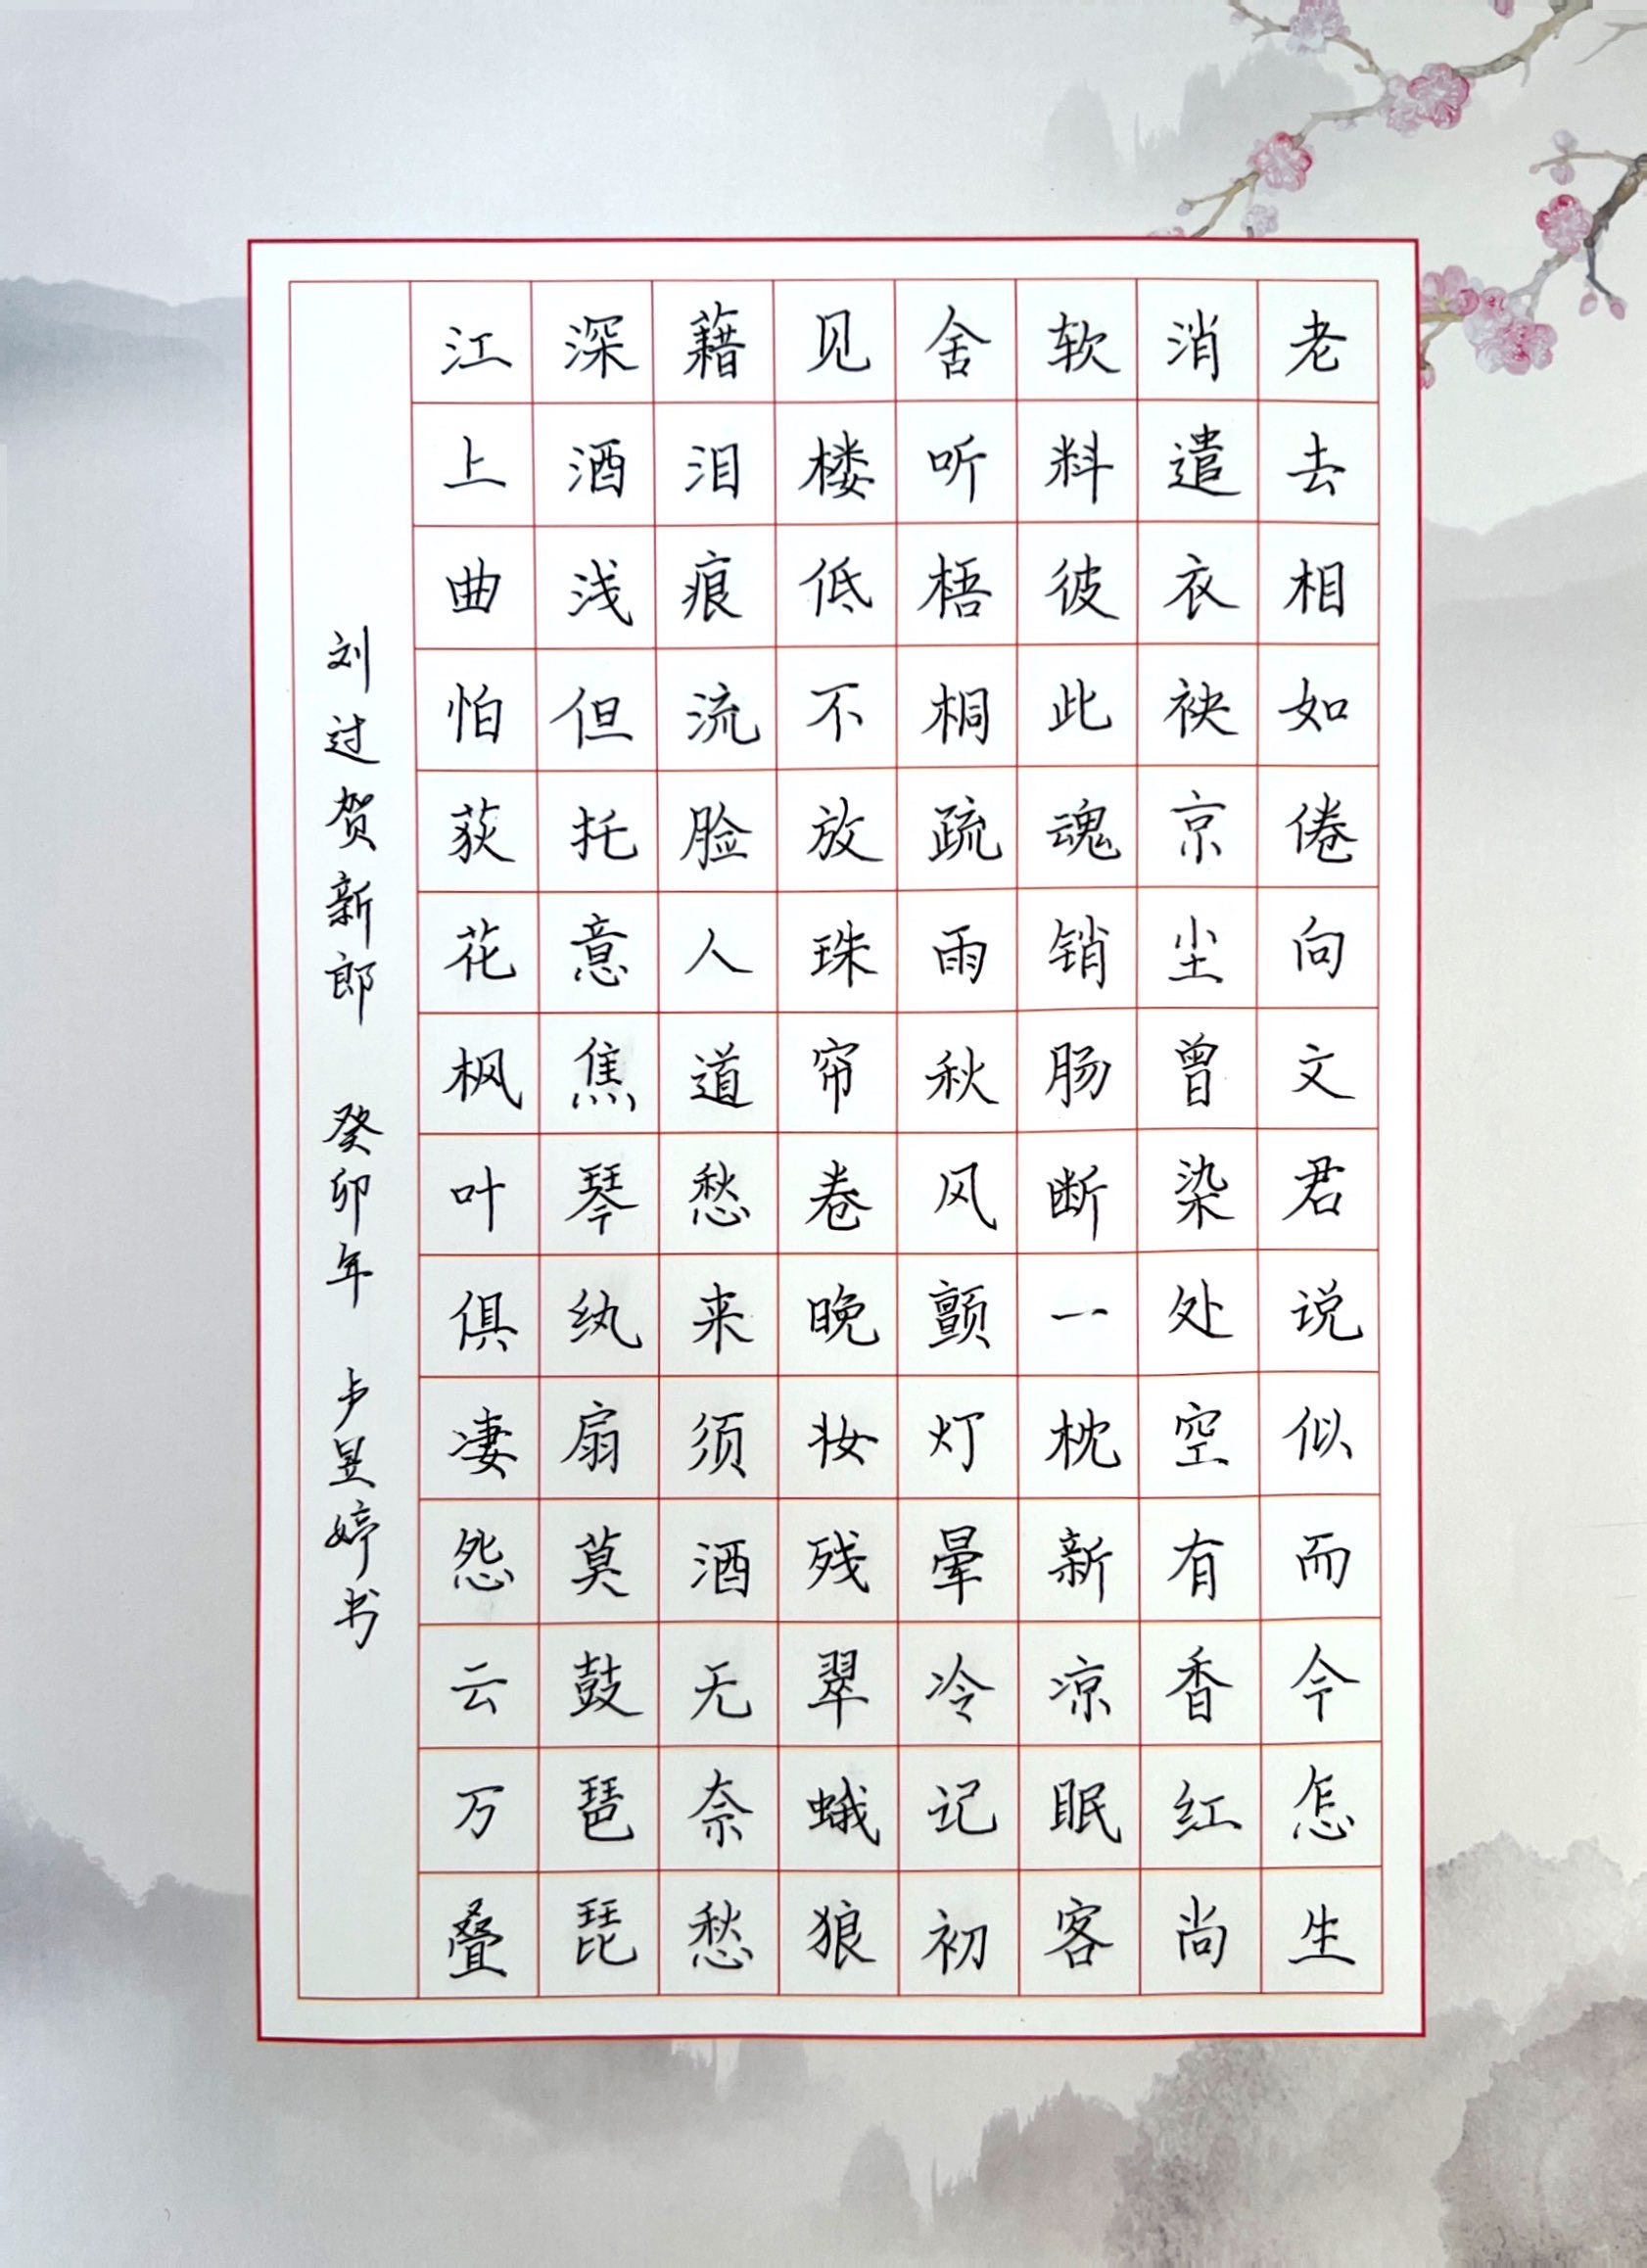 老去相如倦向文君说似而今怎生
消遣衣袂京尘曾染处空有香红尚
软料彼此魂销肠断一枕新凉眠客
舍听梧桐疏雨秋风颤灯晕冷记初
见楼低不放珠帘卷晚妆残翠蛾狼
藉泪痕流脸人道愁来须酒无奈愁
深酒浅但托意焦琴纨扇莫鼓琶琵
江上曲怕荻花枫叶俱凄怨云万叠
刘过贺新郎 癸卯年 卢昱婷书